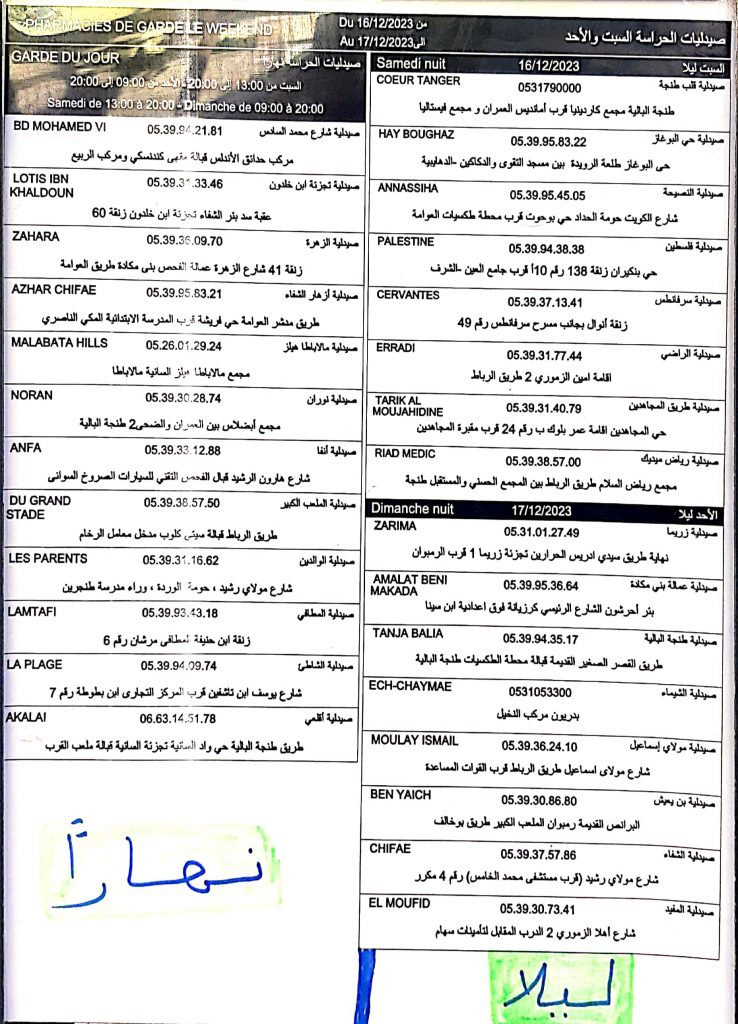 PHARMACIES DE GARDE LE WEEKEND
Du 16/12/2023 من
Au 17/12/2023 الى
صيدليات الحراسة السبت والأحد
GARDE DU JOUR صيدليات الحراسة نهارا
السبت من 13:00 إلى 20:00 - الأحد من 09:00 إلى 20:00
Samedi de 13:00 à 20:00 - Dimanche de 09:00 à 20:00
BD MOHAMED VI 05.39.94.21.81 صيدلية شارع محمد السادس
مركب حدائق الأندلس قبالة مقهى كندنسكي ومركب الربيع
LOTIS IBN KHALDOUN 05.39.31.33.46 صيدلية تجزئة ابن خلدون
عقبة سد بئر الشفاء تجزئة ابن خلدون زنقة 60
ZAHARA 05.39.36.09.70 صيدلية الزهرة
زنقة 41 شارع الزهرة عمالة الفحص بني مكادة طريق العوامة
AZHAR CHIFAE 05.39.95.83.21 صيدلية أزهار الشفاء
طريق مدشر العوامة حي فريشة قرب المدرسة الابتدائية المكي الناصري
MALABATA HILLS 05.26.01.29.24 صيدلية مالاباطا هيلز
مجمع مالاباطا هيلز السانية مالاباطا
NORAN 05.39.30.28.74 صيدلية نوران
مجمع أبضلاس بين العمران والضحى2 طنجة البالية
ANFA 05.39.33.12.88 صيدلية أنفا
شارع هارون الرشيد قبال الفحص التقني للسيارات الصروخ السواني
DU GRAND STADE 05.39.38.57.50 صيدلية الملعب الكبير
طريق الرباط قبالة سيتي كلوب مدخل معامل الرخام
LES PARENTS 05.39.31.16.62 صيدلية الوالدين
شارع مولاي رشيد ، حومة الوردة ، وراء مدرسة طنجرين
LAMTAFI 05.39.93.43.18 صيدلية المطافي
زنقة ابن حنيفة لمطافي مرشان رقم 6
LA PLAGE 05.39.94.09.74 صيدلية الشاطئ
شارع يوسف ابن تاشفين قرب المركز التجارى ابن بطوطة رقم 7
AKALAI 06.63.14.51.78 صيدلية أقلعي
طريق طنجة البالية حي واد السانية تجزئة السانية قبالة ملعب القرب
نهاراً
Samedi nuit 16/12/2023 السبت ليلا
COEUR TANGER 0531790000 صيدلية قلب طنجة
طنجة البالية مجمع كاردينيا قرب أمانديس العمران و مجمع فيستاليا
HAY BOUGHAZ 05.39.95.83.22 صيدلية حي البوغاز
حي البوغاز طلعة الرويدة بين مسجد التقوى والدكاكين -الدهايبية
ANNASSIHA 05.39.95.45.05 صيدلية النصيحة
شارع الكويت حومة الحداد حي بوحوت قرب محطة طكسيات العوامة
PALESTINE 05.39.94.38.38 صيدلية فلسطين
حي بنكيران زنقة 138 رقم 10أ قرب جامع العين -الشرف
CERVANTES 05.39.37.13.41 صيدلية سرفانطس
زنقة أنوال بجانب مسرح سرفانطس رقم 49
ERRADI 05.39.31.77.44 صيدلية الراضي
اقامة امين الزموري 2 طريق الرباط
TARIK AL MOUJAHIDINE 05.39.31.40.79 صيدلية طريق المجاهدين
حي المجاهدين اقامة عمر بلوك ب رقم 24 قرب مقبرة المجاهدين
RIAD MEDIC 05.39.38.57.00 صيدلية رياض ميديك
مجمع رياض السلام طريق الرباط بين المجمع الحسني والمستقبل طنجة
Dimanche nuit 17/12/2023 الأحد ليلا
ZARIMA 05.31.01.27.49 صيدلية زريما
نهاية طريق سيدي ادريس الحرارين تجزئة زريما 1 قرب الرمبوان
AMALAT BENI MAKADA 05.39.95.36.64 صيدلية عمالة بني مكادة
بئر أحرشون الشارع الرئيسي كرزيانة فوق اعدادية ابن سينا
TANJA BALIA 05.39.94.35.17 صيدلية طنجة البالية
طريق القصر الصغير القديمة قبالة محطة الطكسيات طنجة البالية
ECH-CHAYMAE 0531053300 صيدلية الشيماء
بدريون مركب النخيل
MOULAY ISMAIL 05.39.36.24.10 صيدلية مولاي إسماعيل
شارع مولاى اسماعيل طريق الرباط قرب القوات المساعدة
BEN YAICH 05.39.30.86.80 صيدلية بن يعيش
البرانص القديمة رمبوان الملعب الكبير طريق بوخالف
CHIFAE 05.39.37.57.86 صيدلية الشفاء
شارع مولاي رشيد (قرب مستشفى محمد الخامس) رقم 4 مكرر
EL MOUFID 05.39.30.73.41 صيدلية المفيد
شارع أهلا الزموري 2 الدرب المقابل لتأمينات سهام
ليلا